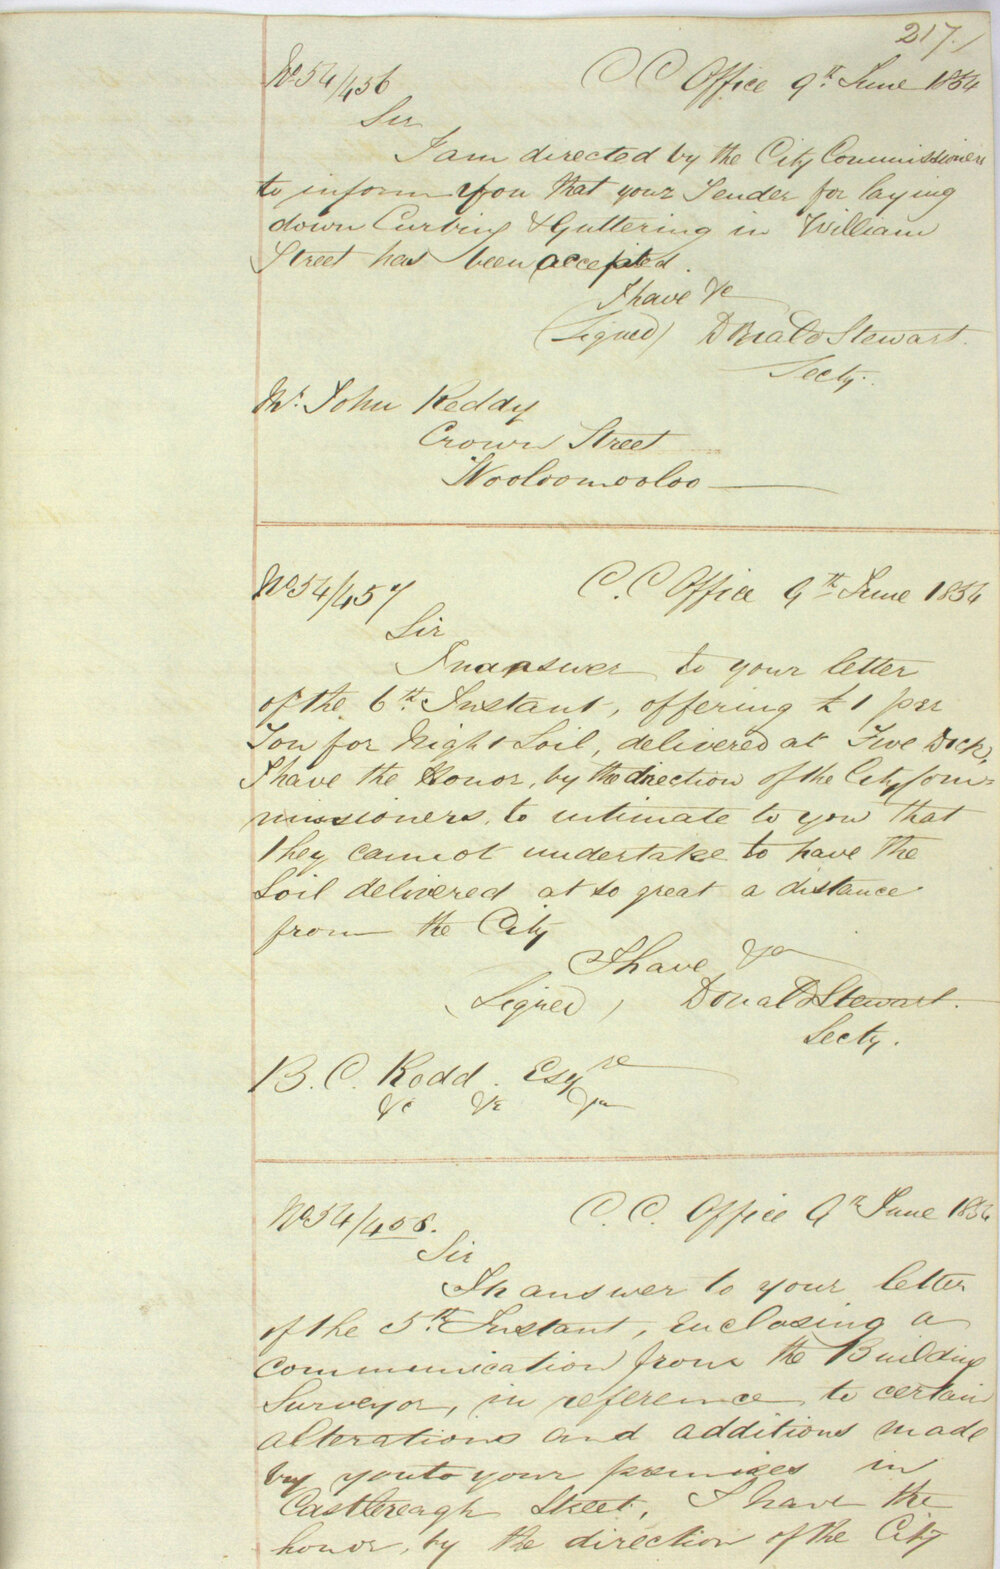 217./
No 54/456 C C Office 9th June 1854
Sir
I am directed by the City Commissioners
to inform you that your Tender for laying
down Curbing & Guttering in William
Street has been accepted.
I have &c
(Signed) Donald Stewart.
Secty.
Mr. John Reddy
Crown Street
Wooloomooloo
No 54/457 C. C Office 9th June 1854
Sir
In answer to your letter
of the 6th Instant, offering £1 per
Ton for Night Soil, delivered at Five Dock,
I have the Honor, by the direction of the City Com=
missioners, to intimate to you that
they cannot undertake to have the
Soil delivered at so great a distance
from the City
I have &c
Signed) Donald Stewart.
Secty.
B. C. Rodd. Esqre
&c &c &c
No 54/458. C. C. Office 9th June 1854
Sir
In answer to your letter
of the 5th Instant, enclosing a
communication from the Building
Surveyor, in reference to certain
alterations and additions made
by you to your premises in
Castlereagh Street, I have the
honor, by the direction of the City